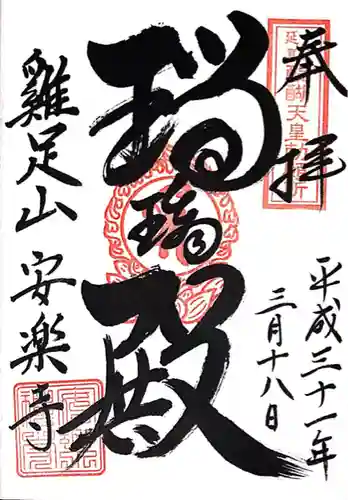 奉拝
延喜帝醍醐天皇勅願所
平成三十一年
三月十八日
瑠璃殿
雞足山 安楽寺